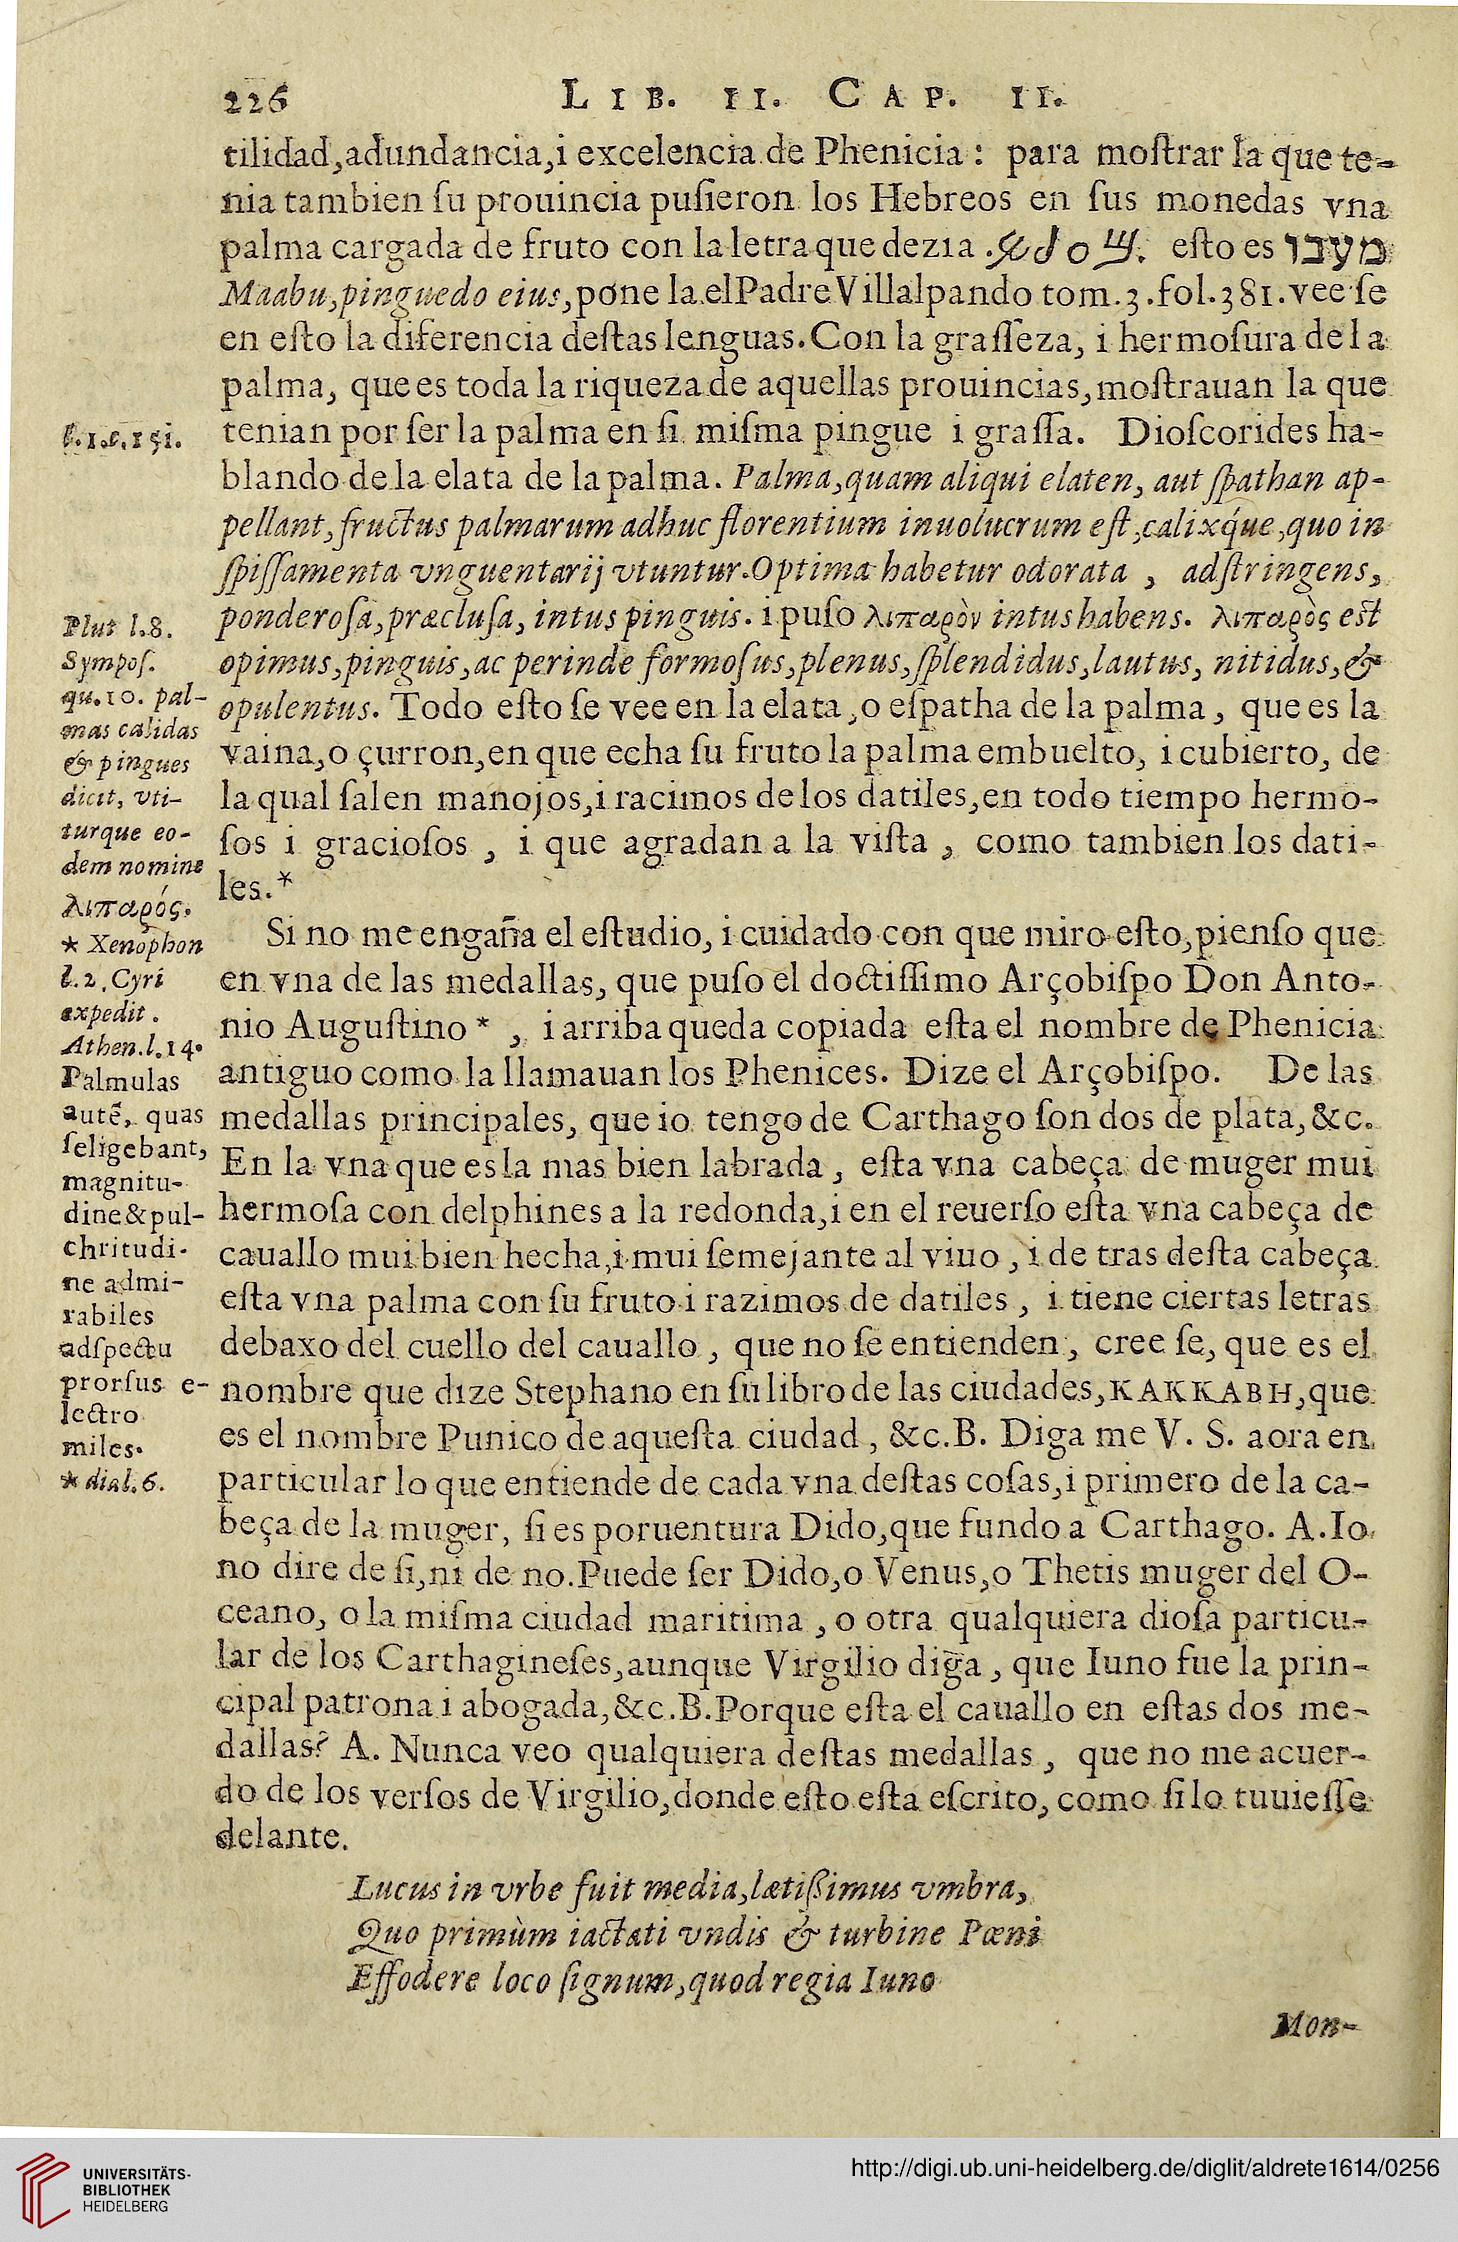 226 LIB. II. CAP. II.
tilidad,adundancia,i excelencia de Phenicia : para moſtrar la que te-
nia tambien ſu prouincia puſieron los Hebreos en ſus monedas vna
palma cargada de fruto con la letra que dezia . eſto es מעבו
Maabu,pinguedo eius,pone la elPadre Villalpando tom.3.fol.381.vee ſe
en eſto la diferencia deſtas lenguas.Con la graſſeza, i hermoſura de la
palma, que es toda la riqueza de aquellas prouincias,moſtrauan la que
tenian por ſer la palma en ſi miſma pingue i graſſa. Dioſcorides ha-
blando de la elata de la palma. Palma,quam aliqui elaten, aut ſpathan ap-
pellant,fructus palmarum adhuc florentium inuolucrum eſt,calixq́ue,quo in
ſpiſſamenta vnguentarij vtuntur.Optima habetur odorata , adſtringens,
ponderoſa,præcluſa, intus pinguis. i puſo λιπαρὸν intus habens. λιπαρὸς eſt
opimus,pinguis,ac perinde formoſus,plenus,ſplendidus,lautus, nitidus,&
opulentus. Todo eſto ſe vee en la elata,o eſpatha de la palma, que es la
vaina,o çurron,en que echa ſu fruto la palma embuelto, i cubierto, de
la qual ſalen manojos,i racimos de los datiles,en todo tiempo hermo-
ſos i gracioſos , i que agradan a la viſta , como tambien los dati-
les.*
l.1.c.151.
Plut l.8.
Sympoſ.
qu.10. pal-
mas calidas
& pingues
dicit, vti-
turque eo-
dem nomine
λιπαρός.
* Xenophon
l.2.Cyri
expedit.
Athen.l.14.
Palmulas
autē, quas
ſeligebant,
magnitu-
dine&pul-
chritudi-
ne admi-
rabiles
adſpectu
prorſus e-
lectro
miles.
* dial.6.
Si no me engaña el eſtudio, i cuidado con que miro eſto,pienſo que
en vna de las medallas, que puſo el doctiſſimo Arçobiſpo Don Anto-
nio Auguſtino * , i arriba queda copiada eſta el nombre de Phenicia
antiguo como la llamauan los Phenices. Dize el Arçobiſpo. De las
medallas principales, que io tengo de Carthago ſon dos de plata,&c.
En la vna que es la mas bien labrada , eſta vna cabeça de muger mui
hermoſa con delphines a la redonda,i en el reuerſo eſta vna cabeça de
cauallo mui bien hecha,i mui ſemejante al viuo , i de tras deſta cabeça
eſta vna palma con ſu fruto i razimos de datiles , i tiene ciertas letras
debaxo del cuello del cauallo , que no ſe entienden , cree ſe, que es el
nombre que dize Stephano en ſu libro de las ciudades,ΚΑΚΚΑΒΗ,que
es el nombre Punico de aqueſta ciudad , &c.B. Diga me V. S. aora en
particular lo que entiende de cada vna deſtas coſas,i primero de la ca-
beça de la muger, ſi es poruentura Dido,que fundo a Carthago. A.Io
no dire de ſi,ni de no.Puede ſer Dido,o Venus,o Thetis muger del O-
ceano, o la miſma ciudad maritima , o otra qualquiera dioſa particu-
lar de los Carthagineſes,aunque Virgilio diga , que Iuno fue la prin-
cipal patrona i abogada,&c.B.Porque eſta el cauallo en eſtas dos me-
dallas? A. Nunca veo qualquiera deſtas medallas , que no me acuer-
do de los verſos de Virgilio,donde eſto eſta eſcrito, como ſi lo tuuieſſe
delante.
Lucus in vrbe fuit media,lætißimus vmbra,
Quo primùm iactati vndis & turbine Pœni
Effodere loco ſignum,quod regia Iuno
Mon-
UNIVERSITÄTS-
BIBLIOTHEK
HEIDELBERG
http://digi.ub.uni-heidelberg.de/diglit/aldrete1614/0256